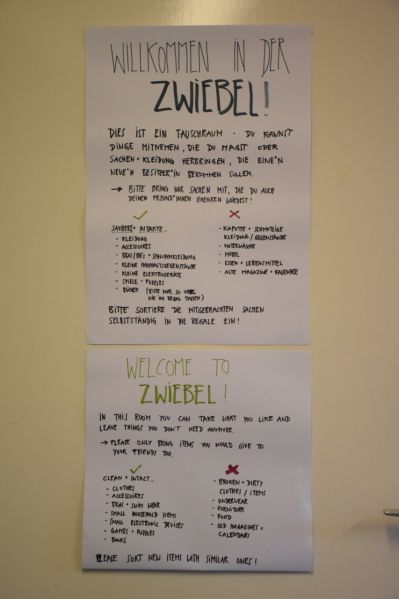 WILLKOMMEN IN DER
ZWIEBEL!
DIES IST EIN TAUSCHRAUM - DU KANNST
DINGE MITNEHMEN, DIE DU MAGST ODER
SACHEN + KLEIDUNG HERBRINGEN, DIE EINE*N
NEUE*N BESITZER*IN BEKOMMEN SOLLEN.
→ BITTE BRING NUR SACHEN MIT, DIE DU AUCH
DEINEN FREUND*INNEN SCHENKEN WÜRDEST!
✓
SAUBERE + INTAKTE...
- KLEIDUNG
- ACCESSOIRES
- BRAS/BH'S + SCHWIMMKLEIDUNG
- KLEINE HAUSHALTSGEGENSTÄNDE
- KLEINE ELEKTROGERÄTE
- SPIELE + PUZZLES
- BÜCHER (BITTE NUR SO VIELE
WIE INS REGAL PASSEN)
✗
- KAPUTTE + SCHMUTZIGE
KLEIDUNG / GEGENSTÄNDE
- UNTERWÄSCHE
- MÖBEL
- ESSEN + LEBENSMITTEL
- ALTE MAGAZINE + KALENDER
BITTE SORTIERE DIE MITGEBRACHTEN SACHEN
SELBSTSTÄNDIG IN DIE REGALE EIN!
WELCOME TO
ZWIEBEL!
IN THIS ROOM YOU CAN TAKE WHAT YOU LIKE AND
LEAVE THINGS YOU DON'T NEED ANYMORE.
→ PLEASE ONLY BRING ITEMS YOU WOULD GIVE TO
YOUR FRIENDS TOO.
✓
CLEAN + INTACT...
- CLOTHES
- ACCESSOIRES
- BRAS + SWIM WEAR
- SMALL HOUSEHOLD ITEMS
- SMALL ELECTRONIC DEVICES
- GAMES + PUZZLES
- BOOKS
✗
- BROKEN + DIRTY
CLOTHES / ITEMS
- UNDERWEAR
- FURNITURE
- FOOD
- OLD MAGAZINES +
CALENDARS
PLEASE SORT NEW ITEMS WITH SIMILAR ONES!